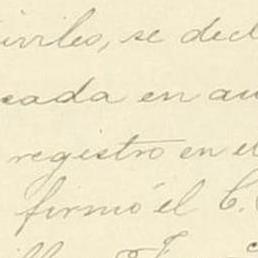 iviles, se decl
cada en au
registro en el
firmó el C.